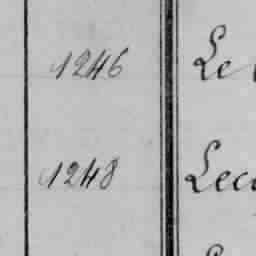 1246 Le
1248 Lec